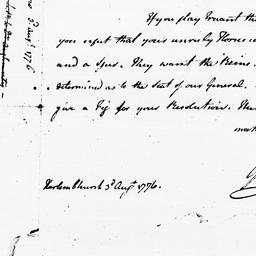 If you play Truant th
you expect that your unruly Horses
and a spur. They want the Reins.
determined as to the Seat of our General.
give a Fig for your Resolution. The
Harlem Church 3d Augt 1776.
3d Augt 1776